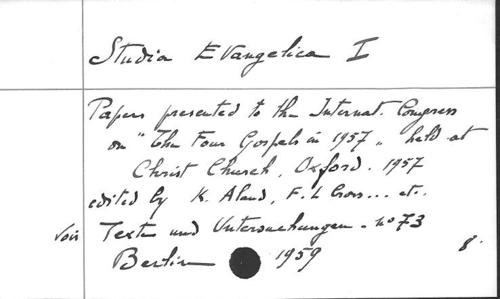 Studia Evangelica I
Papers presented to the Internat. Congress
on "The Four Gospels in 1957" held at
Christ Church, Oxford. 1957
edited by K. Aland, F. L Cross... etc.
Voir Texte und Untersuchungen - no 73
Berlin 1959 8.